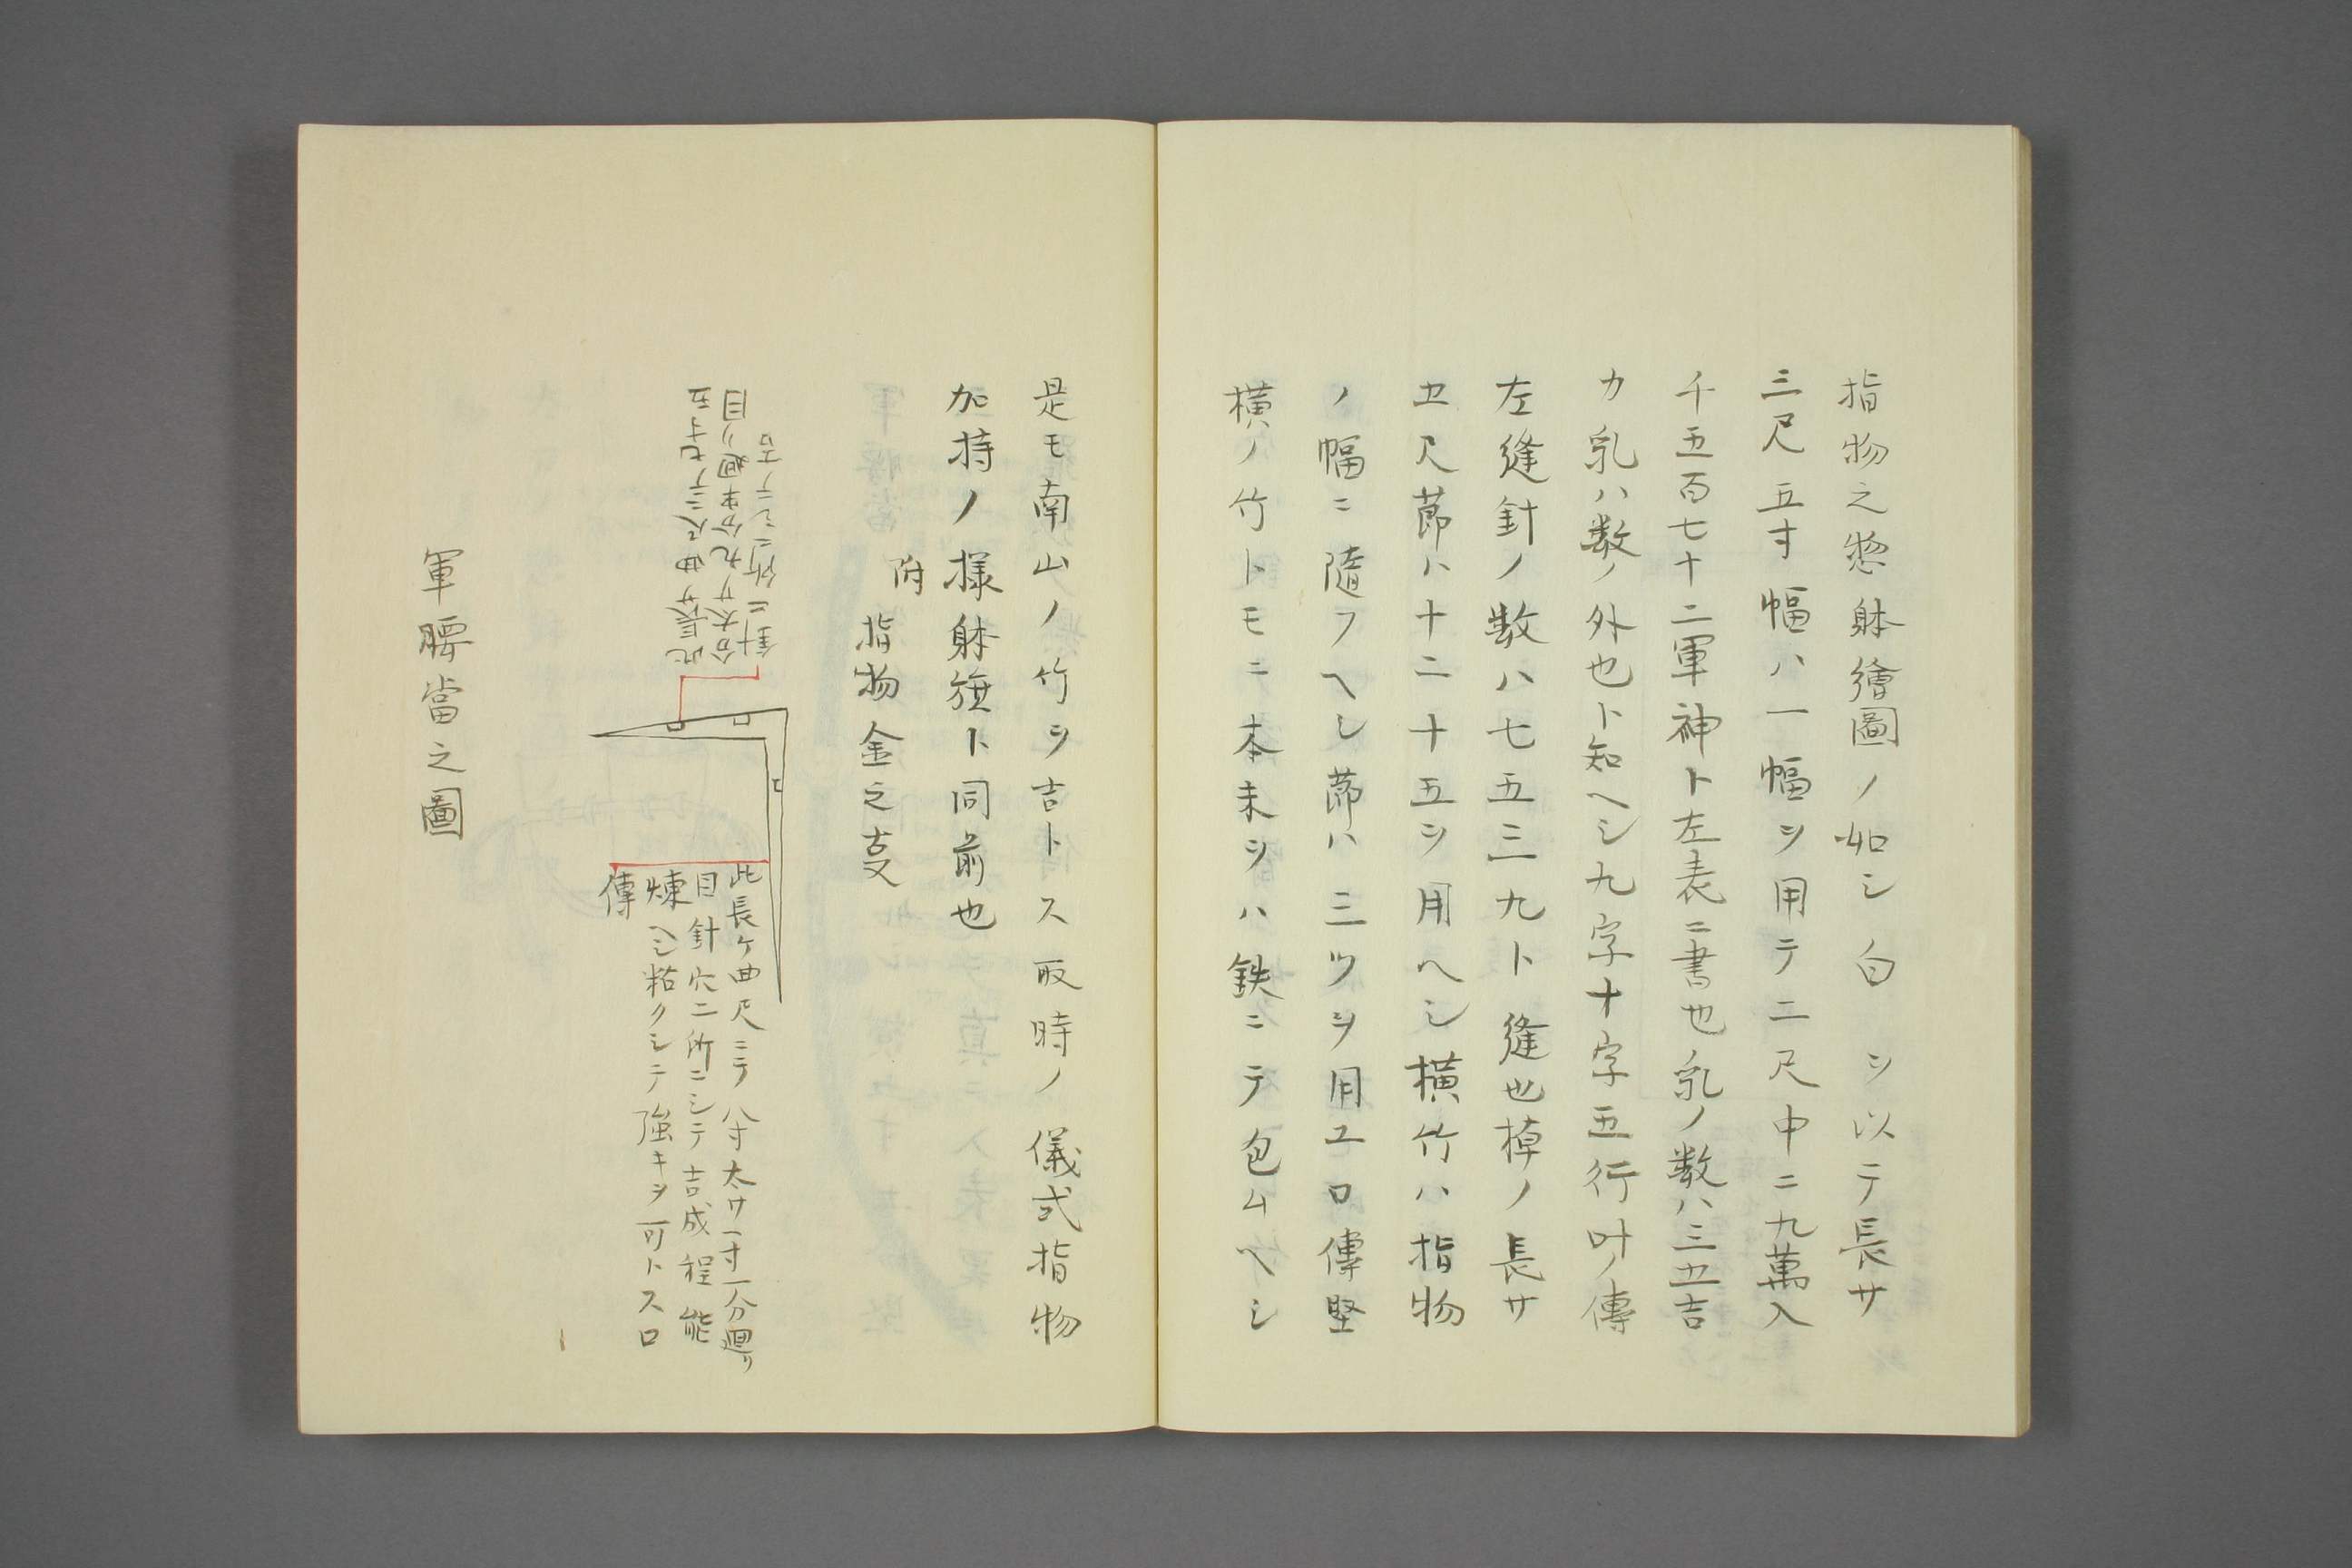 指物之惣躰繪圖ノ如シ白シ以テ長サ
三尺五寸幅ハ一幅ヲ用テ二尺中ニ九萬入
千五百七十二軍神ト左表ニ書也乳ノ数ハ三五吉
カ乳ハ数ノ外也ト知ヘシ九字十字五行叶ノ傳
左縫針ノ数ハ七五三九ト縫也棹ノ長サ
五尺莭ハ十二十五ヲ用ヘシ横竹ハ指物
ノ幅ニ隨フヘシ莭ハ三ツヲ用ユ口傳堅
横ノ竹トモニ本末ヲハ鉄ニテ包ムヘシ
是モ南山ノ竹ヲ吉トス取時ノ儀式指物
加持ノ様躰旗ト同前也
附
指物金之叓
此長サ曲尺ニテ七寸五
分太サ九分半廻リ目
針二所ニシテ吉
此長ケ曲尺ニテ八寸太サ一寸一分廻リ
目針穴二所ニシテ吉成程能
煉ヘシ粘クシテ強キヲ可トス口
傳
軍腰當之圖